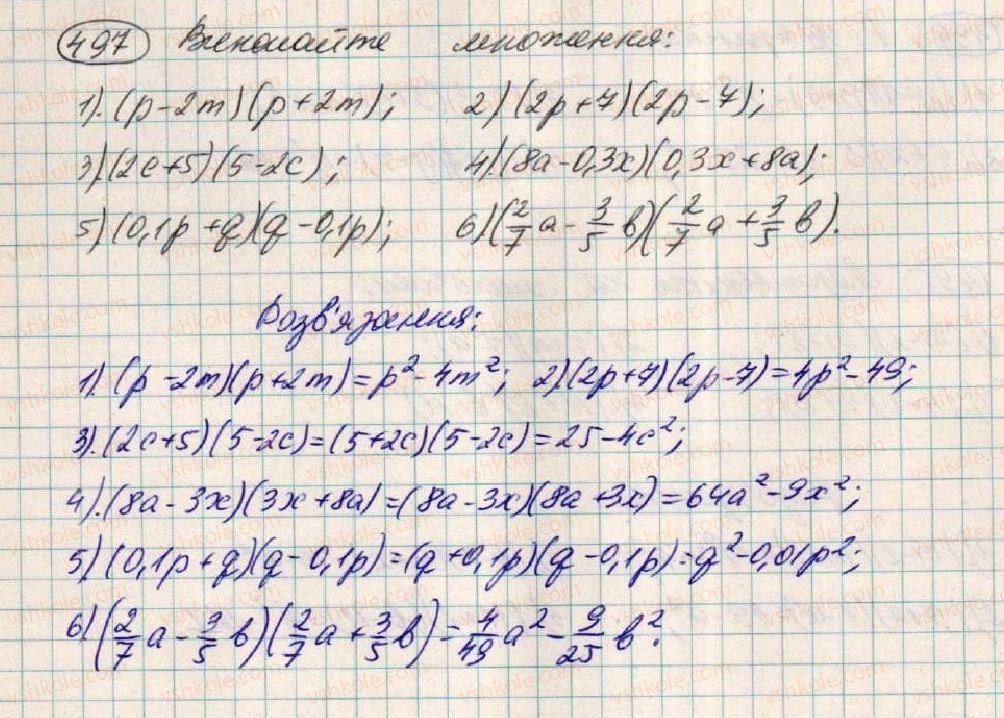 497 Виконайте множення:
1). (p-2m)(p+2m); 2) (2p+7)(2p-7);
3) (2c+5)(5-2c); 4) (8a-0,3x)(0,3x+8a);
5) (0,1p+q)(q-0,1p); 6) (2/7 a - 3/5 b)(2/7 a + 3/5 b).
Розв'язання:
1). (p-2m)(p+2m)=p²-4m²; 2) (2p+7)(2p-7)=4p²-49;
3). (2c+5)(5-2c)=(5+2c)(5-2c)=25-4c²;
4). (8a-3x)(3x+8a)=(8a-3x)(8a+3x)=64a²-9x²;
5) (0,1p+q)(q-0,1p)=(q+0,1p)(q-0,1p)=q²-0,01p²;
6) (2/7 a - 3/5 b)(2/7 a + 3/5 b)=4/49 a² - 9/25 b².